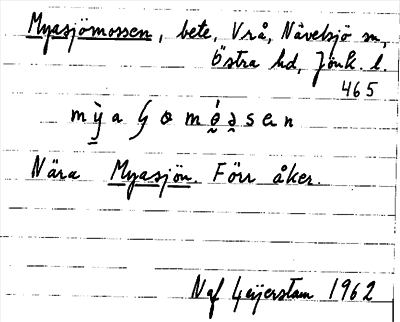 Myasjömossen, bete, Vrå, Nävelsjö sn,
Östra hd, Jönk. l.
465
Nära Myasjön. Förr åker.
Naf Geijerstam 1962